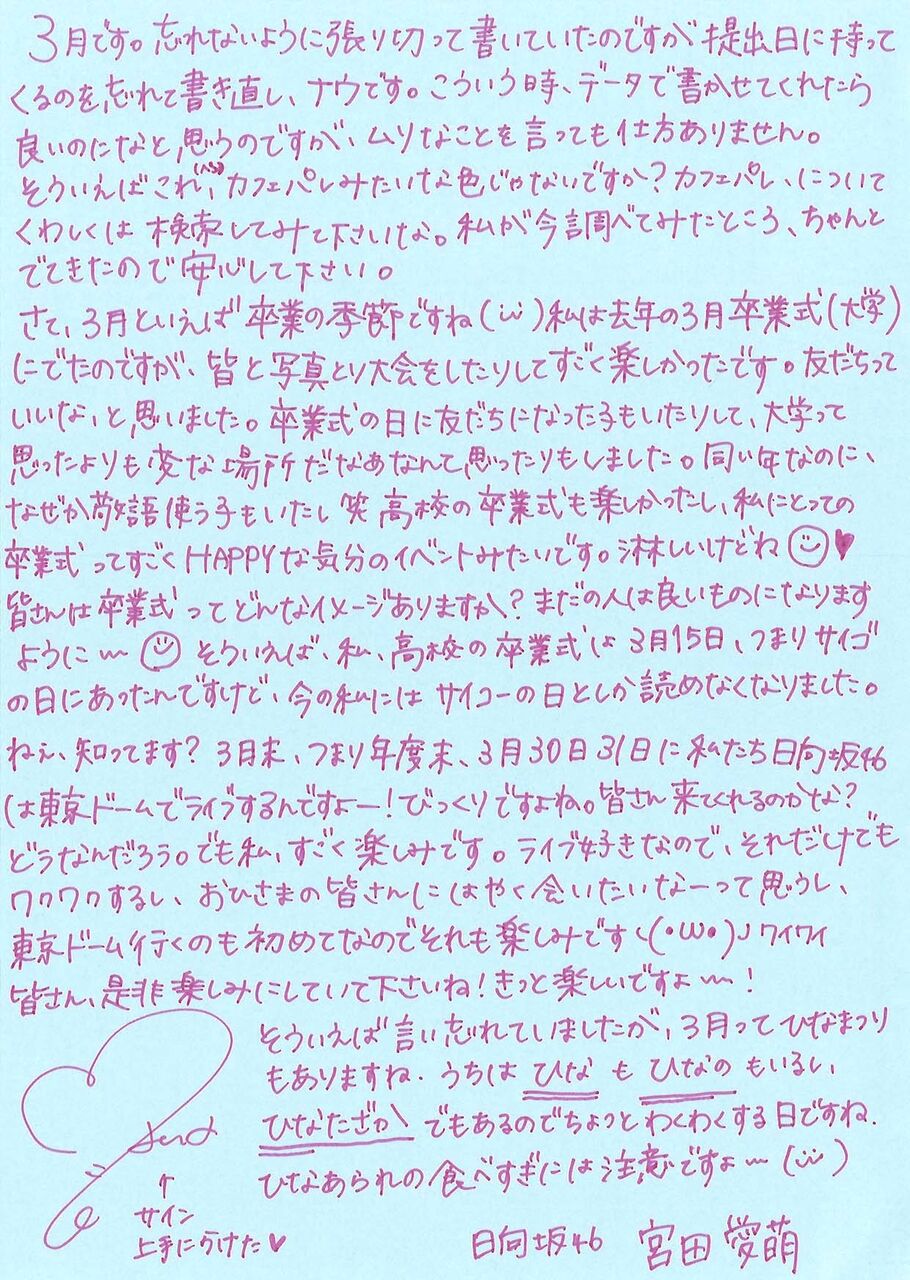 3月です。忘れないように張り切って書いていたのですが提出日に持って
くるのを忘れて書き直し、ナウです。こういう時、データで書かせてくれたら
良いのになと思うのですが、ムリなことを言っても仕方ありません。
そういえばこれ、(ペン)カフェパレみたいな色じゃないですか?カフェパレ、について
くわしくは検索してみて下さいな。私が今調べてみたところ、ちゃんと
でてきたので安心して下さい。
さて、3月といえば卒業の季節ですね(ü)私は去年の3月卒業式(大学)
にでたのですが、皆と写真とり大会をしたりしてすごく楽しかったです。友だちって
いいな、と思いました。卒業式の日に友だちになった子もいたりして、大学って
思ったよりも変な場所だなあなんて思ったりもしました。同い年なのに、
なぜか敬語使う子もいたし笑 高校の卒業式も楽しかったし、私にとっての
卒業式ってすごくHAPPYな気分のイベントみたいです。淋しいけどね☺♥
皆さんは卒業式ってどんなイメージありますか?まだの人は良いものになります
ように〜☺そういえば、私、高校の卒業式は3月15日、つまりサイゴ
の日にあったんですけど、今の私にはサイコーの日としか読めなくなりました。
ねぇ、知ってます?3月末、つまり年度末、3月30日31日に私たち日向坂46
は東京ドームでライブするんですよー!びっくりですよね。皆さん来てくれるのかな?
どうなんだろう。でも私、すごく楽しみです。ライブ好きなので、それだけでも
ワクワクするし、おひさまの皆さんにはやく会いたいなーって思うし、
東京ドーム行くのも初めてなのでそれも楽しみですヽ(・ω・)ノワイワイ
皆さん、是非楽しみにしていて下さいね!きっと楽しいですよ〜!
そういえば言い忘れていましたが、3月ってひなまつり
もありますね.うちはひなもひなのもいるし、
ひなたざかでもあるのでちょっとわくわくする日ですね.
ひなあられの食べすぎには注意ですよ〜(ü)
↑
サイン
上手にかけた♥
日向坂46 宮田愛萌